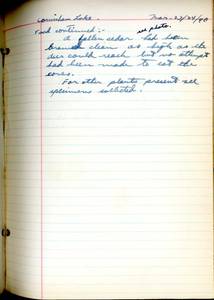 Lake. Mar. 23/24/40
Food continued:- see photo.
A fallen cedar had been
browsed clean as high as the
deer could reach but no attempt
had been made to eat the
cores.
For other plants present see
specimens collected.